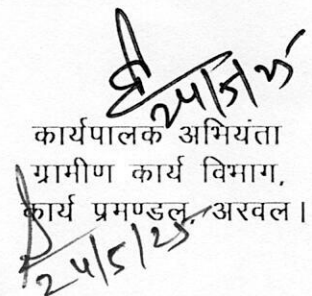 24/5/25
कार्यपालक अभियंता
ग्रामीण कार्य विभाग,
कार्य प्रमण्डल, अरवल।
24/5/25